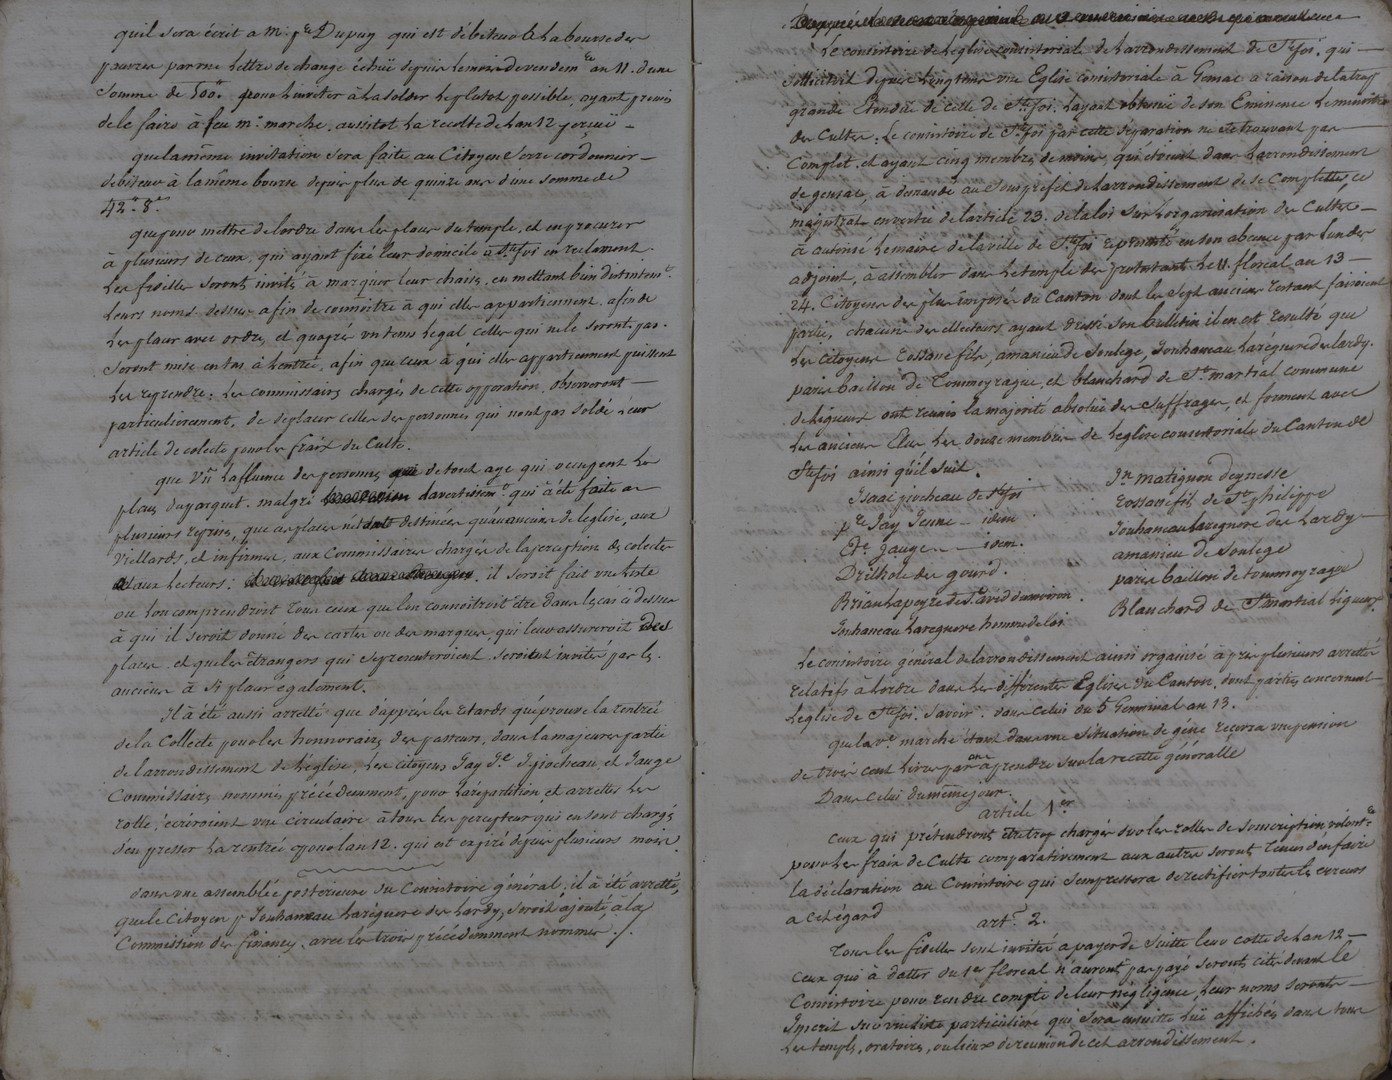 qu'il sera écrit a mr. pre Dupuy qui est débiteur de la bourse des
pauvres par une lettre de change échuë depuis le mois de vendem.re an 11. d'une
somme de 500.# pour l'inviter à la solder le plutot possible, ayant promis
de le faire à feu mr. marche, aussitot la recolte de l'an 12 perçuë –
que la même invitation sera faite au Citoyen Serre cordonnier –
debiteur à la même bourse depuis plus de quinze ans d'une somme de
42.# 8.s
que pour mettre de l'ordre dans les places du temple, et en procurer
à plusieurs de ceux qui ayant fixé leur domicile à Ste. foi en reclament
les fidelles seront invités à marquer leur chaises, en mettant bien distinctemt.
leurs noms dessus afin de connoitre à qui elles appartiennent, afin de
les placer avec ordre, et qu'après un tems légal celles qui ne le seront pas.
seront mise en tas à l'entrée, afin que ceux à qui elles appartiennent puissent
les reprendre; les commissaires chargés de cette opperation, observeront –
particulierement, de déplacer celles des personnes qui n'ont pas soldé leur
article de colecte pour les fraix du Culte.
que Vû l'affluence des personnes de tout age qui occupent les
places du parquet. malgré l'avertissemt. qui a été faite a
plusieurs reprises, que ces places n'étant destinées qu'aux anciens de l'eglise, aux
Viellards, et infirmes, aux Commissaires chargés de la perception des colectes
et aux Lecteurs; il seroit fait une Liste
ou l'on comprendroit tous ceux que l'on connoitroit être dans le cas ci dessus
à qui il seroit donné des cartes ou des marques, qui leur assureroit Des
places. et que les étrangers qui se presenteroient seroient invités par les
anciens à s'i placer également.
Il à été aussi arretté que d'apprès les retards qu'éprouve la rentrée
de la Collecte pour les honnoraires des pasteurs, dans la majeure partie
de l'arrondissement de l'eglise, les citoyens Jay Je. Is. piocheau, et Jauge
Commissaires nommés précédemment, pour la répartition, et arretter les
rolle, écriroient une circulaire à tous les percepteur qui en sont chargé
d'en presser la rentrée pour l'an 12. qui est expiré depuis plusieurs mois.
dans une assemblée posterieure du Consistoire général, il à été arretté,
que le Citoyen pr Jouhaneau Laregnere des Lardy, seroit ajouté, à la
Commission des finances, avec les trois précédemment nommés ./.
Le consistoire de l'eglise consistorial de l'arrondissement de Ste. foi, qui –
sollicitoit depuis longtems une Eglise consistoriale à Gensac a raison de la trop
grande Etenduë de celle de Ste. foi, l'ayant obtenuë de son Eminence le ministre
des Cultes; le consistoire de Ste foi par cette séparation ne se trouvant pas
Complet, et ayant cinq membres de moins, qui étoient dans l'arrondissement
de gensac, à demandé au Souprefet de l'arrondissement de se Completter, ce
magistrat en vertu de l'article 23. de la loi sur l'organisation des Cultes –
à autorisé le maire de la ville de Ste. foi représenté en son absence par l'un des
adjoint, à assembler dans le temple des protestants le 11. floreal an 13 –
24. Citoyens des plus imposés du Canton dont les sept anciens restant faisoient
partie, chacun des ellecteurs ayant dressé son bulletin il en est resulté que
les citoyens Rossane fils, amanieu de Soulege, Jouhaneau Laregnere des lardy.
paris baillou de Tommeyrague, et blanchard de St. martial commune
de Ligueux ont reunis la majorité absolue des suffrages, et forment avec
les anciens Elus les douze membres de l'eglise consistoriale du Canton de
Ste foi ainsi qu'il suit.
Isaac piocheau de Ste foi
pre Jay Jeune – idem
Ete. Jauge – idem.
Drilhole des gourd.
Brian Lapeyre de St. avid du moiron.
Jouhaneau Laregnere homme de loi
Jn matignon deynesse
rossane fils de St. philippe
Jouhaneau Laregnere des Lardy –
amanieu de Soulege
paris baillou de tommeyrague
Blanchard de St. martial Ligueux.
Le consistoire général de l'arrondissement ainsi organisé à pris plusieurs arrettés
relatifs à l'ordre dans les différentes Eglises du Canton, dont partie concernent
l'eglise de Ste. foi. Savoir. dans celui du 5 Germinal an 13.
que la ve. marche étant dans une situation de gêne recevra une pension
de trois cent livres par an à prendre sur la recette généralle
Dans celui du même jour.
article 1.er
Ceux qui prétendront être trop chargés sur les rolles de souscription volont.e
pour les fraix de Culte comparativement aux autres seront tenus d'en faire
la déclaration au Consistoire qui s'empressera de rectifier toutes les erreurs
a cet égard
art.e 2.
Tous les fidelles sont invités a payer de suitte leur cotte de l'an 12 –
ceux qui à datter du 1er floreal n'auront pas payé seront cités devant le
Consistoire pour rendre compte de leur négligence, leur noms seront –
Inscrit sur une liste particulière qui sera ensuitte luë affichée, dans tous
les temple, oratoires, ou lieux de reunion de cet arrondissement.